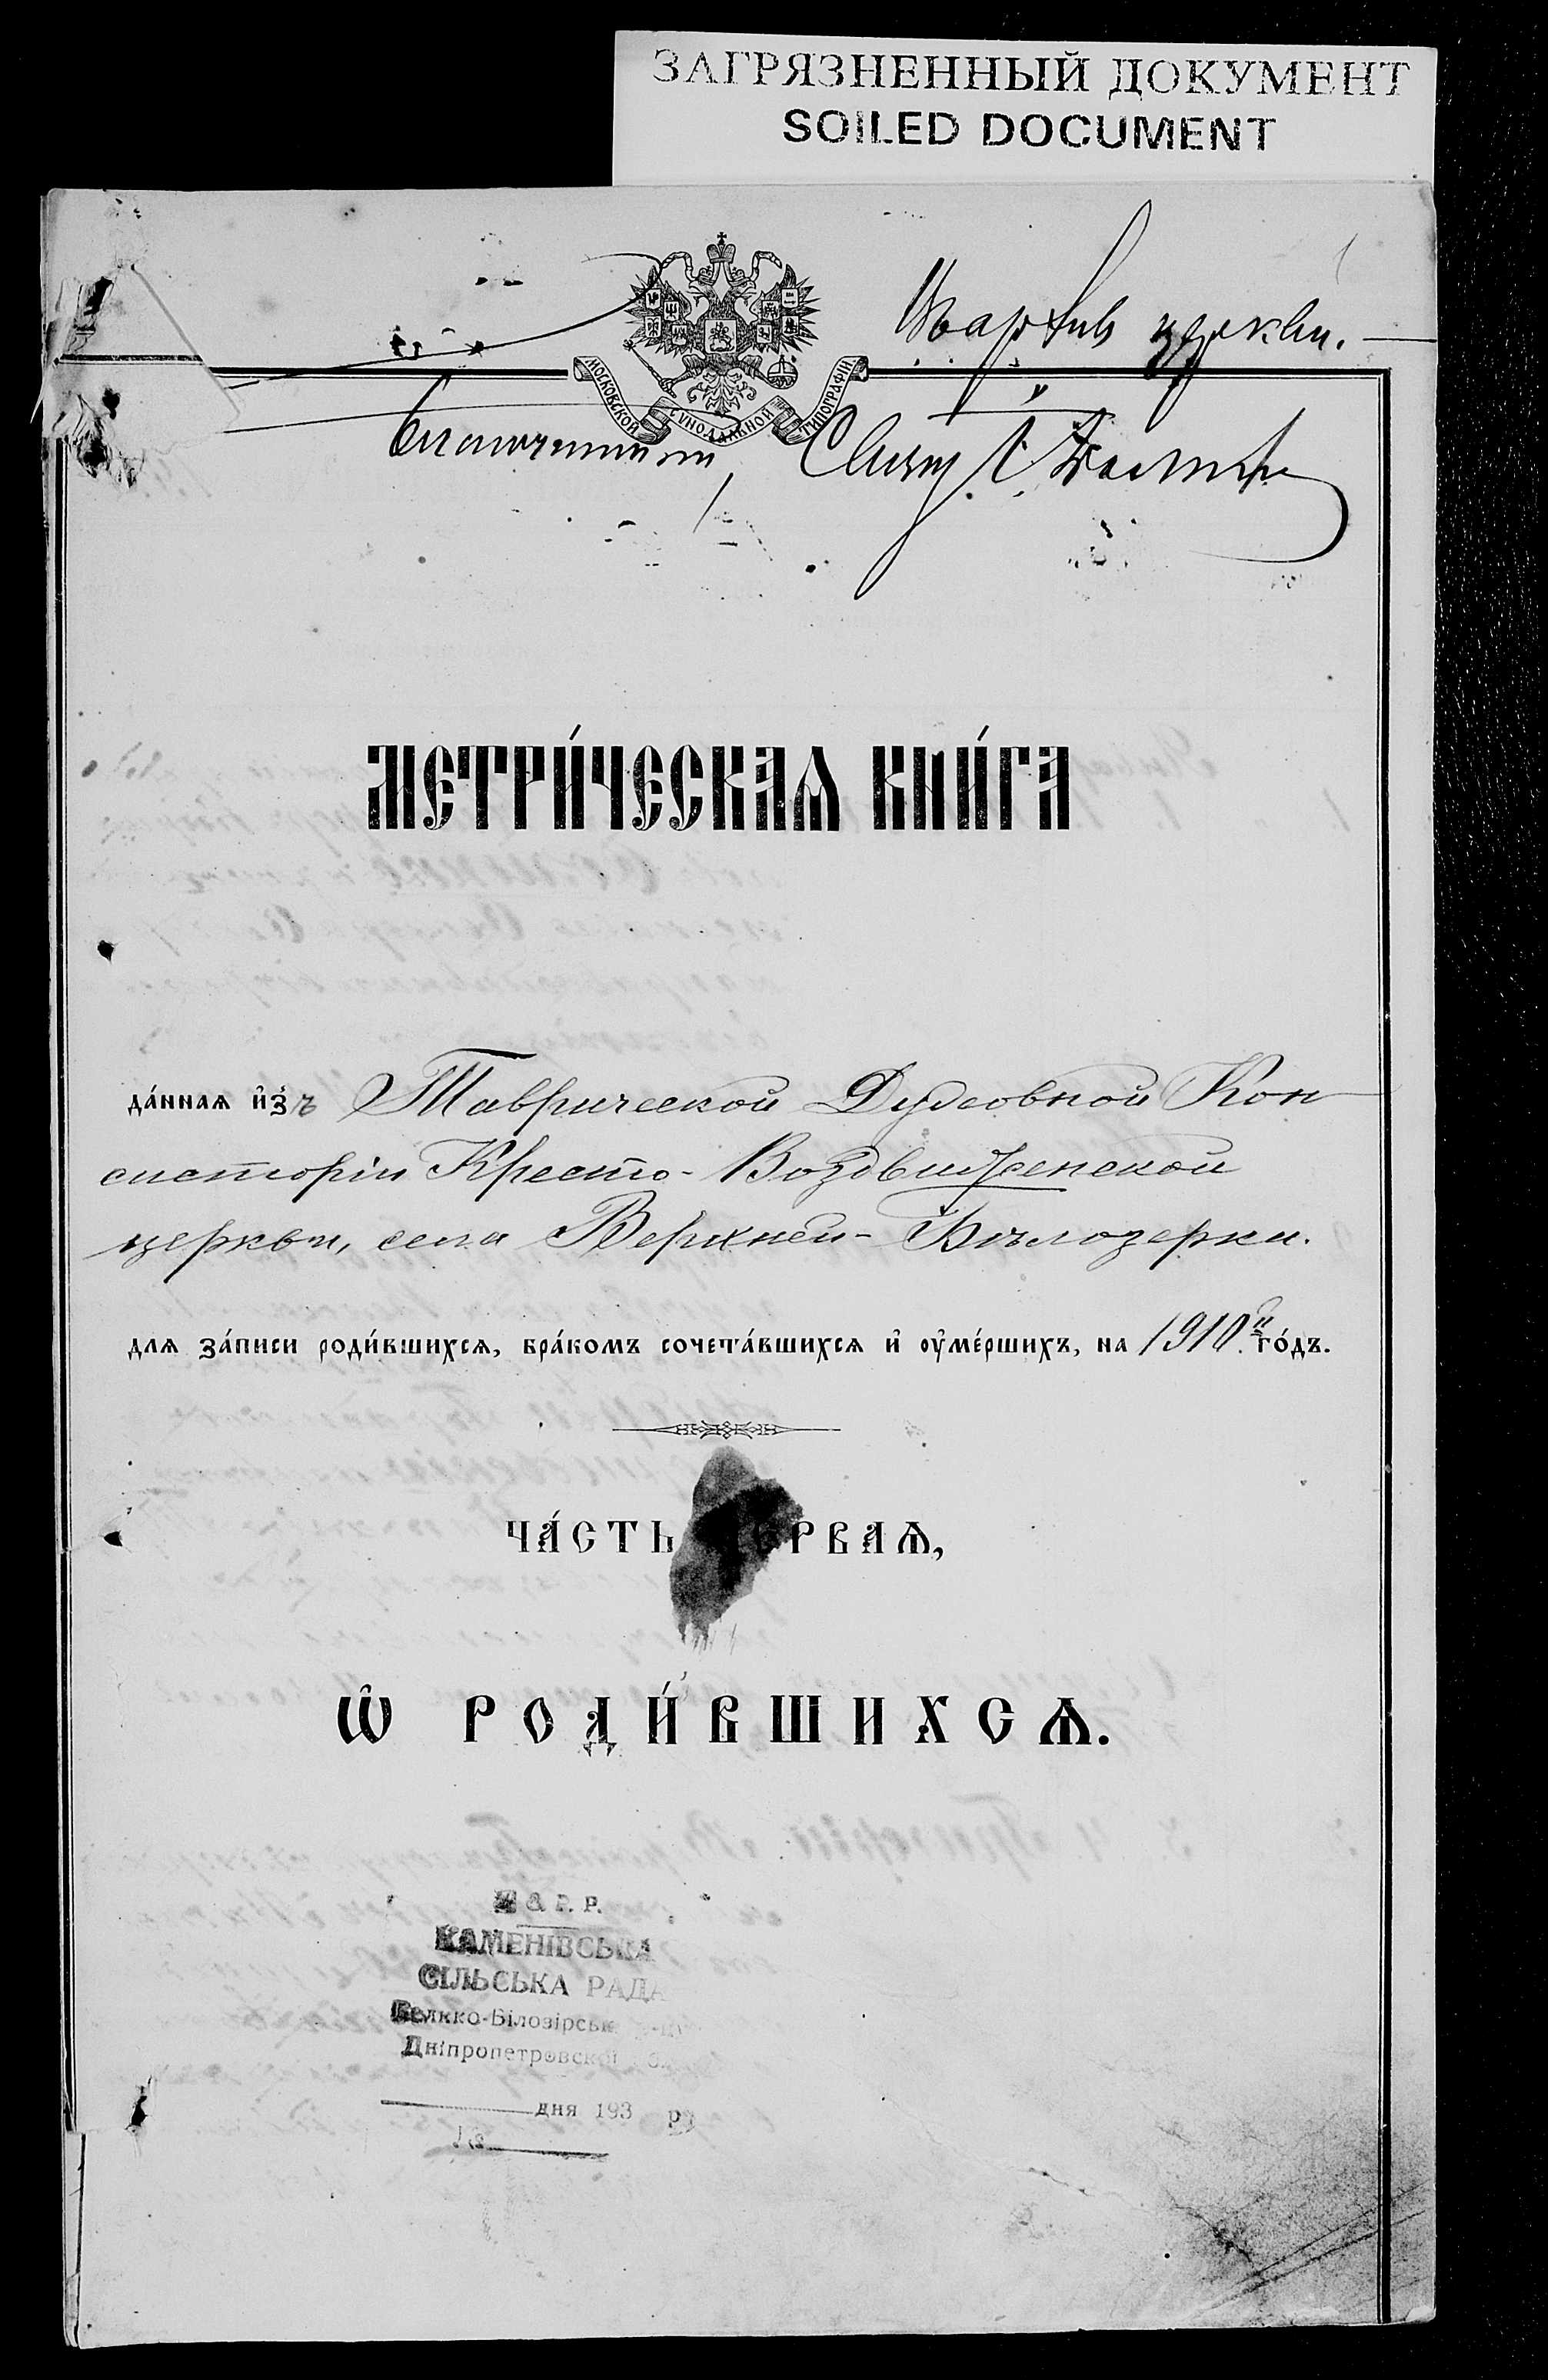 ЗАГРЯЗНЕННЫЙ ДОКУМЕНТ
SOILED DOCUMENT
церкви.
МОСКОВСКОЙ СѴНОДАЛЬНОЙ ТИПОГРАФІИ
Благочинный, Свящ.
МЕТРИ́ЧЕСКАѦ КНИ́ГА
да́ннаѧ и҆зъ Таврической Духовной Кон
систоріи Кресто-Воздвиженской
церкви, села Верхней-Бѣлозерки.
для за́писи роди́вшихсѧ, бра́комъ сочета́вшихсѧ и҆ оу҆ме́ршихъ, на 1910й го́дъ.
ЧА́СТЬ ПЕРВАѦ,
Ѡ҆ РОДИ́ВШИХСѦ.
КАМЕНІВСЬКА
СІЛЬСЬКА РАДА
Велико-Білозірськ
Дніпропетровської
дня 193 р
№